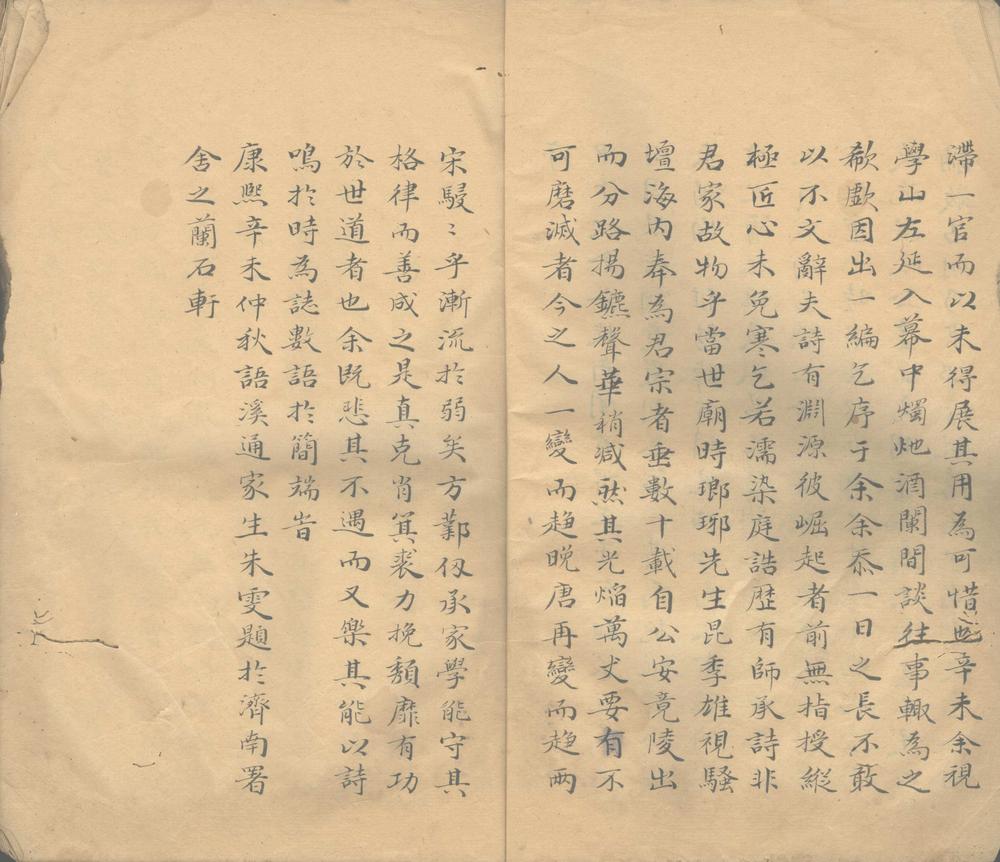 滯一官而以未得展其用為可惜也辛未余視
學山左延入幕中燭灺酒闌間談往事輙為之
欷歔因出一編乞序于余余忝一日之長不敢
以不文辭夫詩有淵源彼崛起者前無指授縱
極匠心未免寒乞若濡染庭誥歷有師承詩非
君家故物乎當世廟時瑯琊先生昆季雄視騷
壇海内奉為君宗者垂數十載自公安竟陵出
而分路揚鑣聲華稍減然其光焰萬丈要有不
可磨滅者今之人一變而趨晚唐再變而趨兩
宋駸〻乎漸流於弱矣方鄴伋承家學能守其
格律而善成之是真克肖箕裘力挽頹靡有功
於世道者也余既悲其不遇而又樂其能以詩
鳴於時為誌數語於簡端旹
康熙辛未仲秋語溪通家生朱雯題於濟南署
舍之蘭石軒